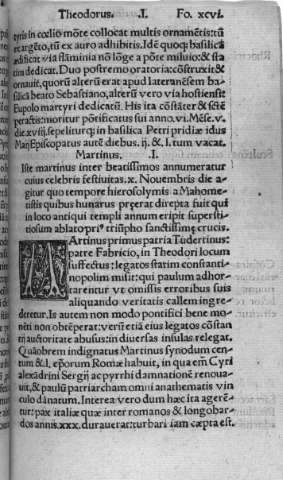 Theodorus. .I. Fo. xcvi.
tyris in cœlio mōte collocat multis ornamētis: tū
ex argēto, tū ex auro adhibitis. Idē quoq; basilicā
ædificat via flaminia nō lōge a pōte miluio: & sta
tim dedicat. Duo postremo oratoria: cōstruxit &
ornauit, quorū alterū erat apud lateranēsem ba-
silica beato Sebastiano, alterū vero via hostiensi
Eupolo martyri dedicatū. His ita cōstāter & sctē
peractis: moritur pōtificatus sui anno. vi. Mēse. v.
die. xviij. sepelitur q; in basilica Petri pridiæ idus
Maij Episcopatus autē diebus. ij. & .l. tum vacat.
Martinus. .I.
Iste martinus inter beatissimos annumeratur
cuius celebris festiuitas. x. Nouembris die a-
gitur quo tempore hierosolymis a Mahome-
tistis quibus hunarus præerat direpta fuit qui
in loco antiqui templi annum eripit supersti-
tiosum ablato pri' triūpho sanctissimę crucis.
MArtinus primus patria Tudertinus:
patre Fabricio, in Theodori locum
suffectus: legatos statim constanti-
nopolim misit: qui paulum adhor-
tarentur vt omissis erroribus suis
aliquando veritatis callem ingre-
deretur. Is autem non modo pontifici bene mo-
nēti non obtēperat: verū etiā eius legatos cōstan
tis auctoritate abusus: in diuersas insulas relegat.
Quāobrem indignatus Martinus synodum cen-
tum & .l. ep̄orum Romæ habuit, in qua em̄ Cyri
alexādrini Sergij ac pyrrhi damnationē renoua-
uit, & paulū patriarcham omni anathematis vin
culo dānatum. Interea vero dum hæc ita agerē-
tur: pax italiæ quæ inter romanos & longobar-
dos annis. xxx. durauerat: turbari iam cæpta est.